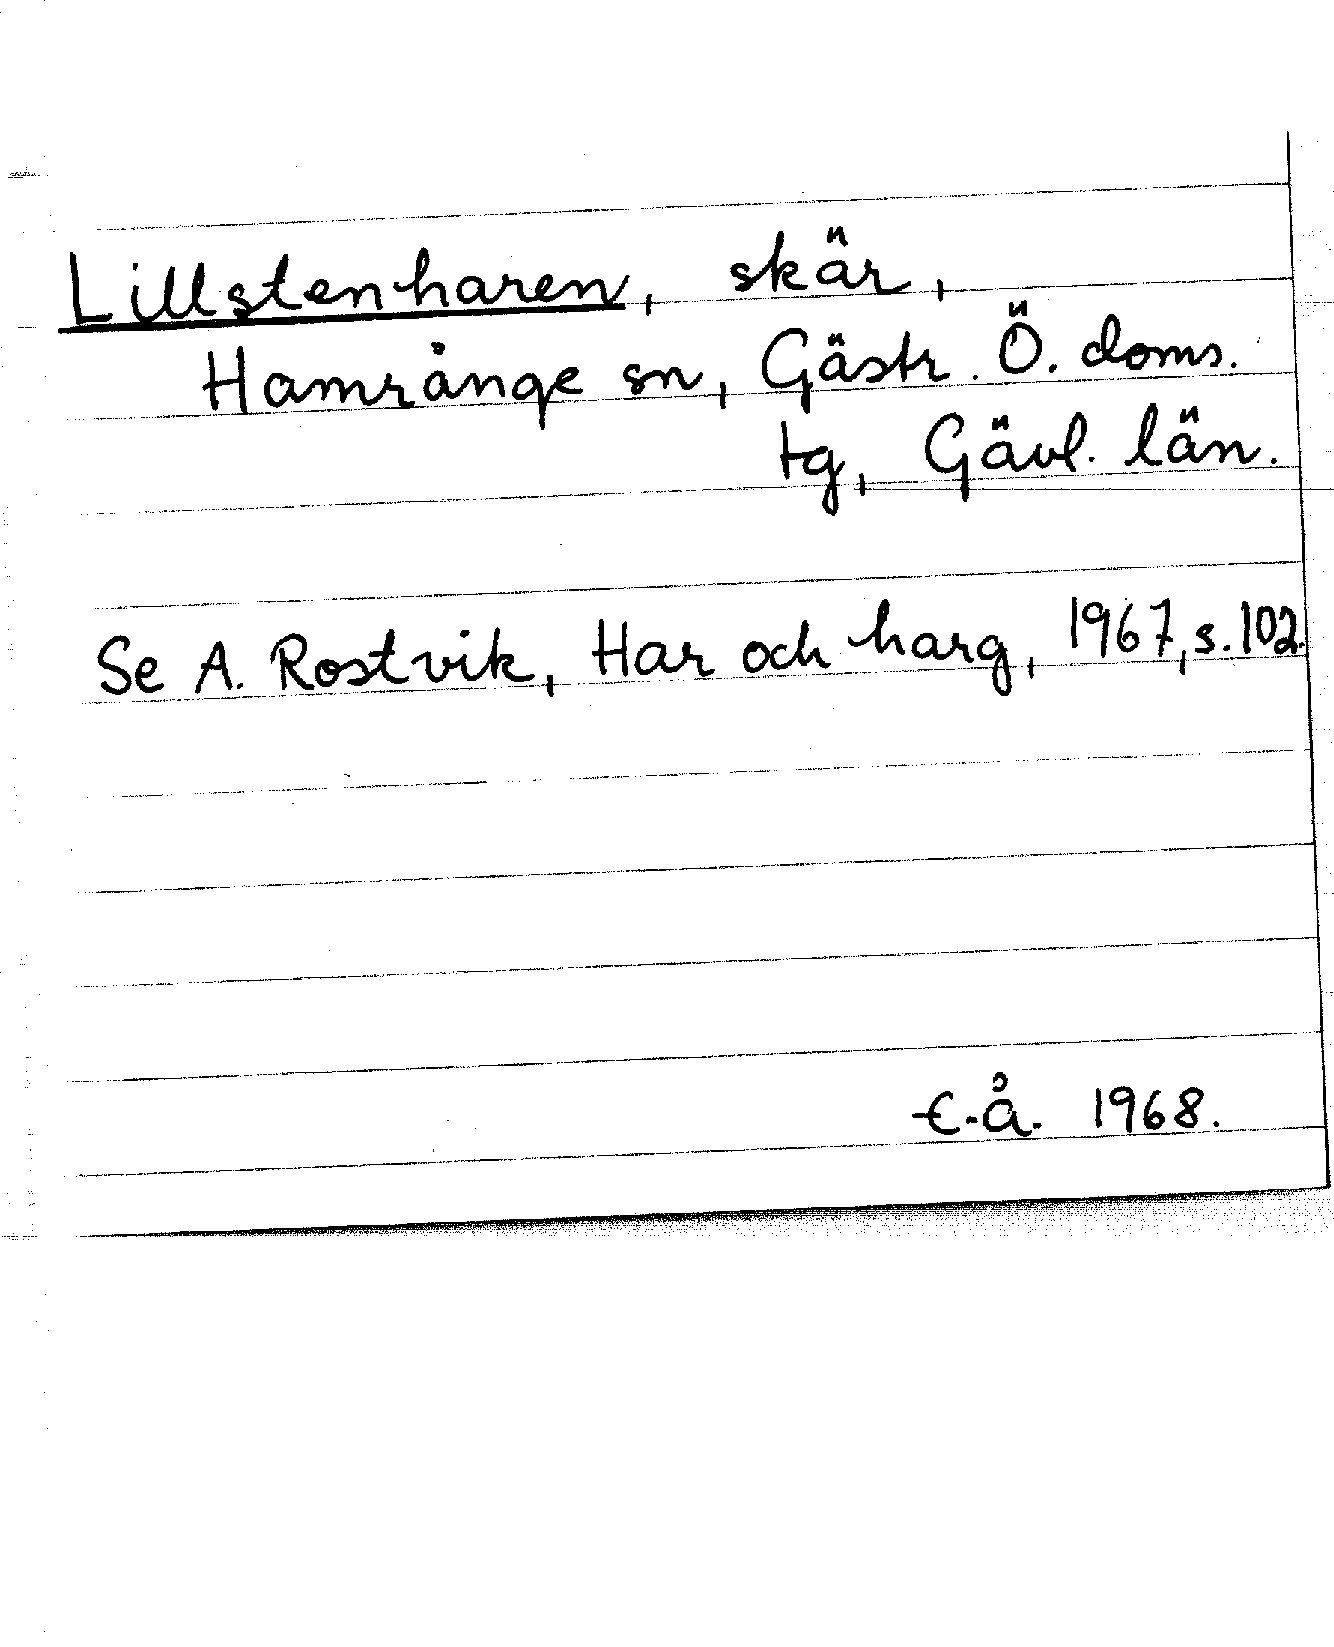 Lillstenharen, skär,
Hamrånge sn, Gästr. Ö. doms.
tg, Gävl. län.
Se A. Rostvik, Har och harg, 1967, s. 102.
E.Å. 1968.